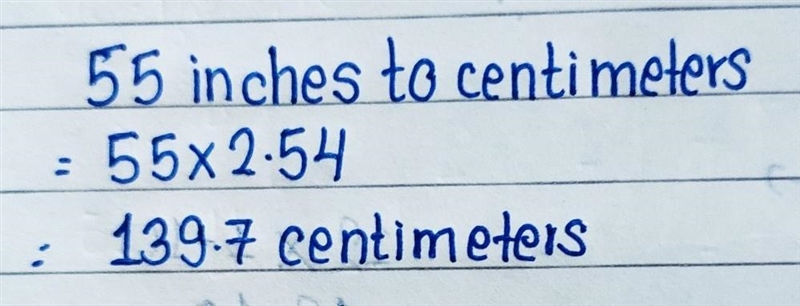 55 inches to centimeters
= 55×2.54
= 139.7 centimeters